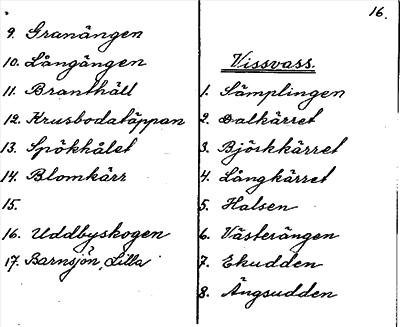 16.
9. Granängen
10. Långängen
11. Branthäll
12. Krusbodatäppan
13. Spökhålet
14. Blomkärr
15.
16. Uddbyskogen
17. Barnsjön, Lilla
Vissvass.
1. Sämplingen
2. Dalkärret
3. Björkkärret
4. Långkärret
5. Halsen
6. Västerängen
7. Ekudden
8. Ängsudden